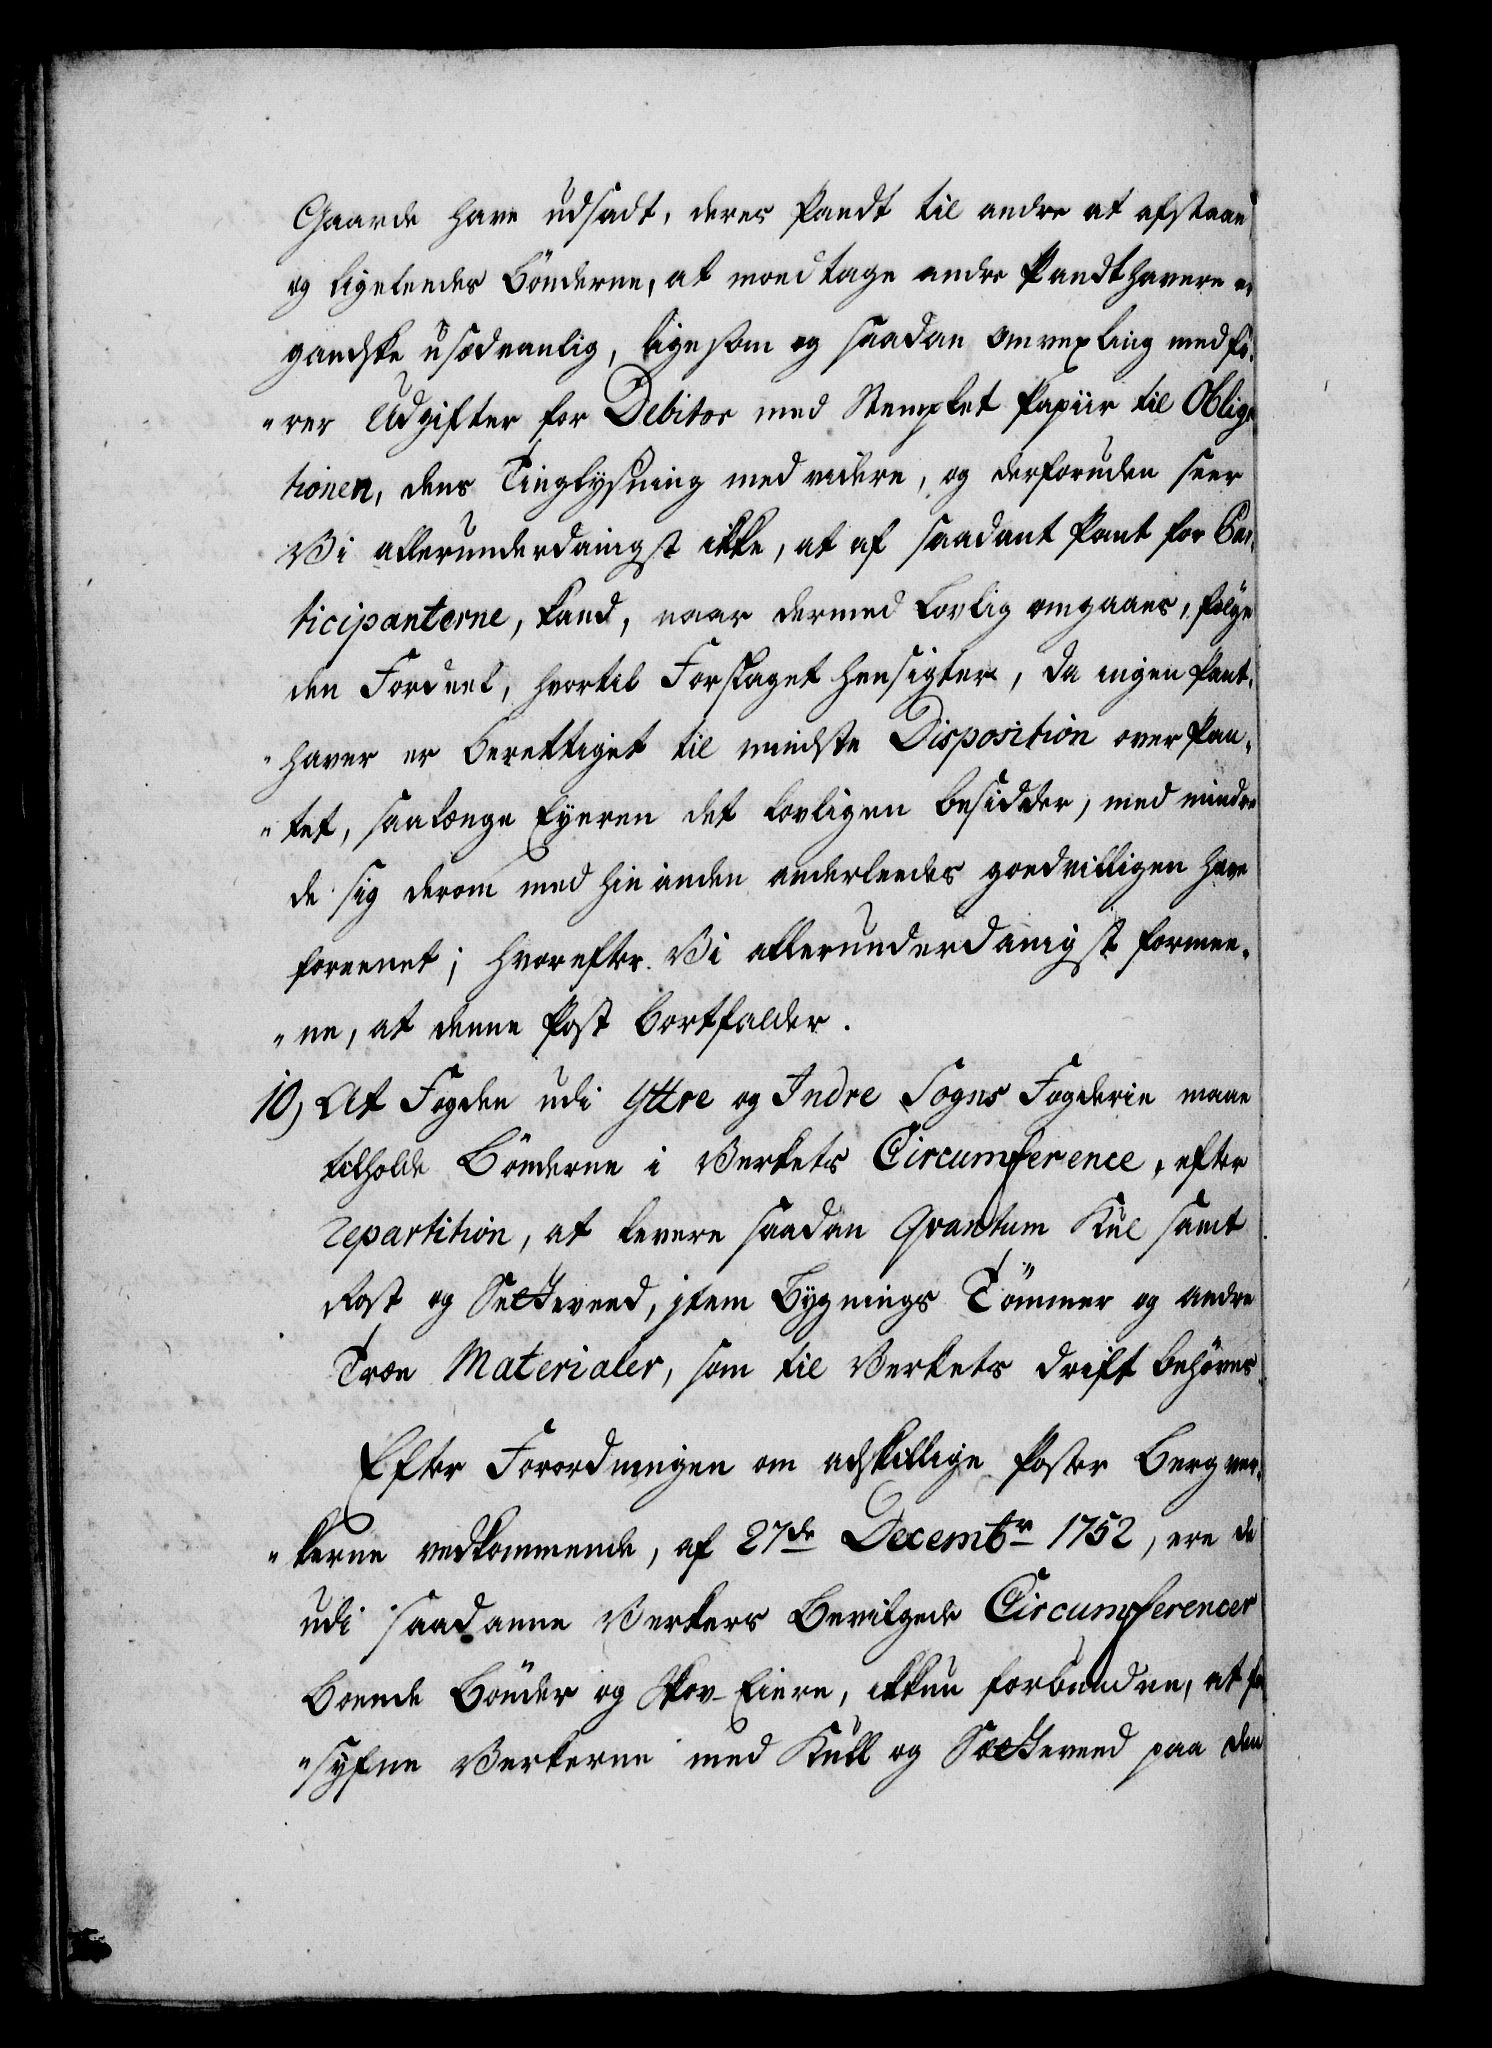 Gaarde have udsadt, deres Pandt til andre at afstaae
og ligeleedes Bönderne, at modtage andre Pandthavere er
gandske usædvanlig, ligesom og saadan Omvexling medfö-
"rer Udgifter for Debitor med Stemplet Papiir til Obliga
tionen, dens Tinglysning med videre, og desforuden seer
Vi allerunderdanigst ikke, at af saadant Pant for Par-
ticipanterne, kand, naar dermed Lovlig omgaaes, fölge
den Fordeel, hvortil Forslaget hensigter, da ingen Pant-
"haver er berettiget til mindste Disposition over Pan-
"tet, saalænge Eyeren det lovligen besidder, med mindre
de sig derom med hin anden anderleedes godvilligen have
foreenet; hvorefter Vi allerunderdanigst formee-
"ne, at denne Post bortfalder.
10) At Fogden udi Yttre og Indre Sogns Fogderie maae
tilholde Bönderne i Verkets Circumference, efter
repartition, at levere saadan Qvantum Kul samt
Rost og Setteveed, item Bygnings Tömmer og andre
Træe Materialer, som til Verkets drift behöves.
Efter Forordningen om adskillige Poster Bergver-
"kerne vedkommende, af 27de Decembr 1752, ere de
udi saadanne Verkers Bevilgede Circumferencer
Boende Bönder og Skov-Eiere, ikkun forbundne, at for
"syfne Verkerne med Kull og Sætteveed paa den